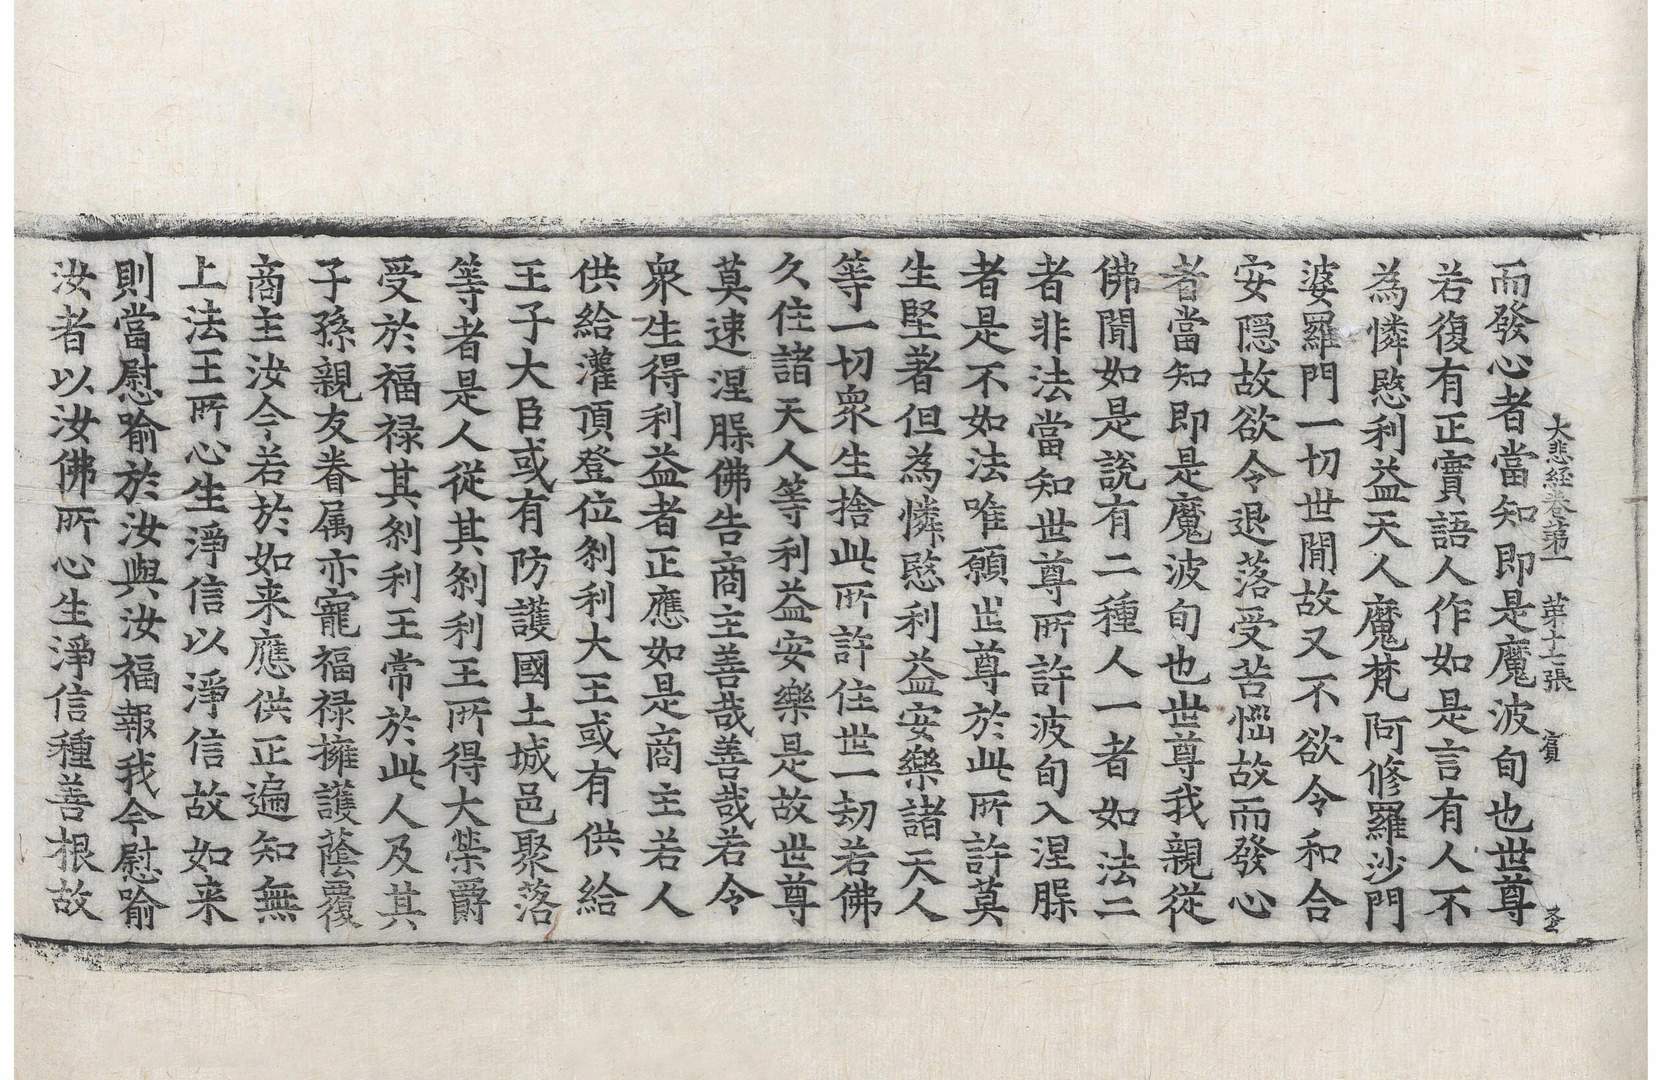 大悲經卷第一 第十七張 賓
而發心者當知即是魔波旬也世尊
若復有正實語人作如是言有人不
為憐愍利益天人魔梵阿修羅沙門
婆羅門一切世閒故又不欲令和合
安隱故欲令退落受苦惱故而發心
者當知即是魔波旬也世尊我親從
佛聞如是說有二種人一者如法二
者非法當知世尊所許波旬入涅槃
者是不如法唯願世尊於此所許莫
生堅著但為憐愍利益安樂諸天人
等一切衆生捨此所許住世一劫若佛
久住諸天人等利益安樂是故世尊
莫速涅槃佛告商主善哉善哉若令
衆生得利益者正應如是商主若人
供給灌頂登位刹利大王或有供給
王子大臣或有防護國土城邑聚落
等者是人從其刹利王所得大榮爵
受於福禄其刹利王常於此人及其
子孫親友眷属亦寵福禄擁護蔭覆
商主汝今若於如来應供正遍知無
上法王所心生淨信以淨信故如来
則當慰喻於汝與汝福報我今慰喻
汝者以汝佛所心生淨信種善根故